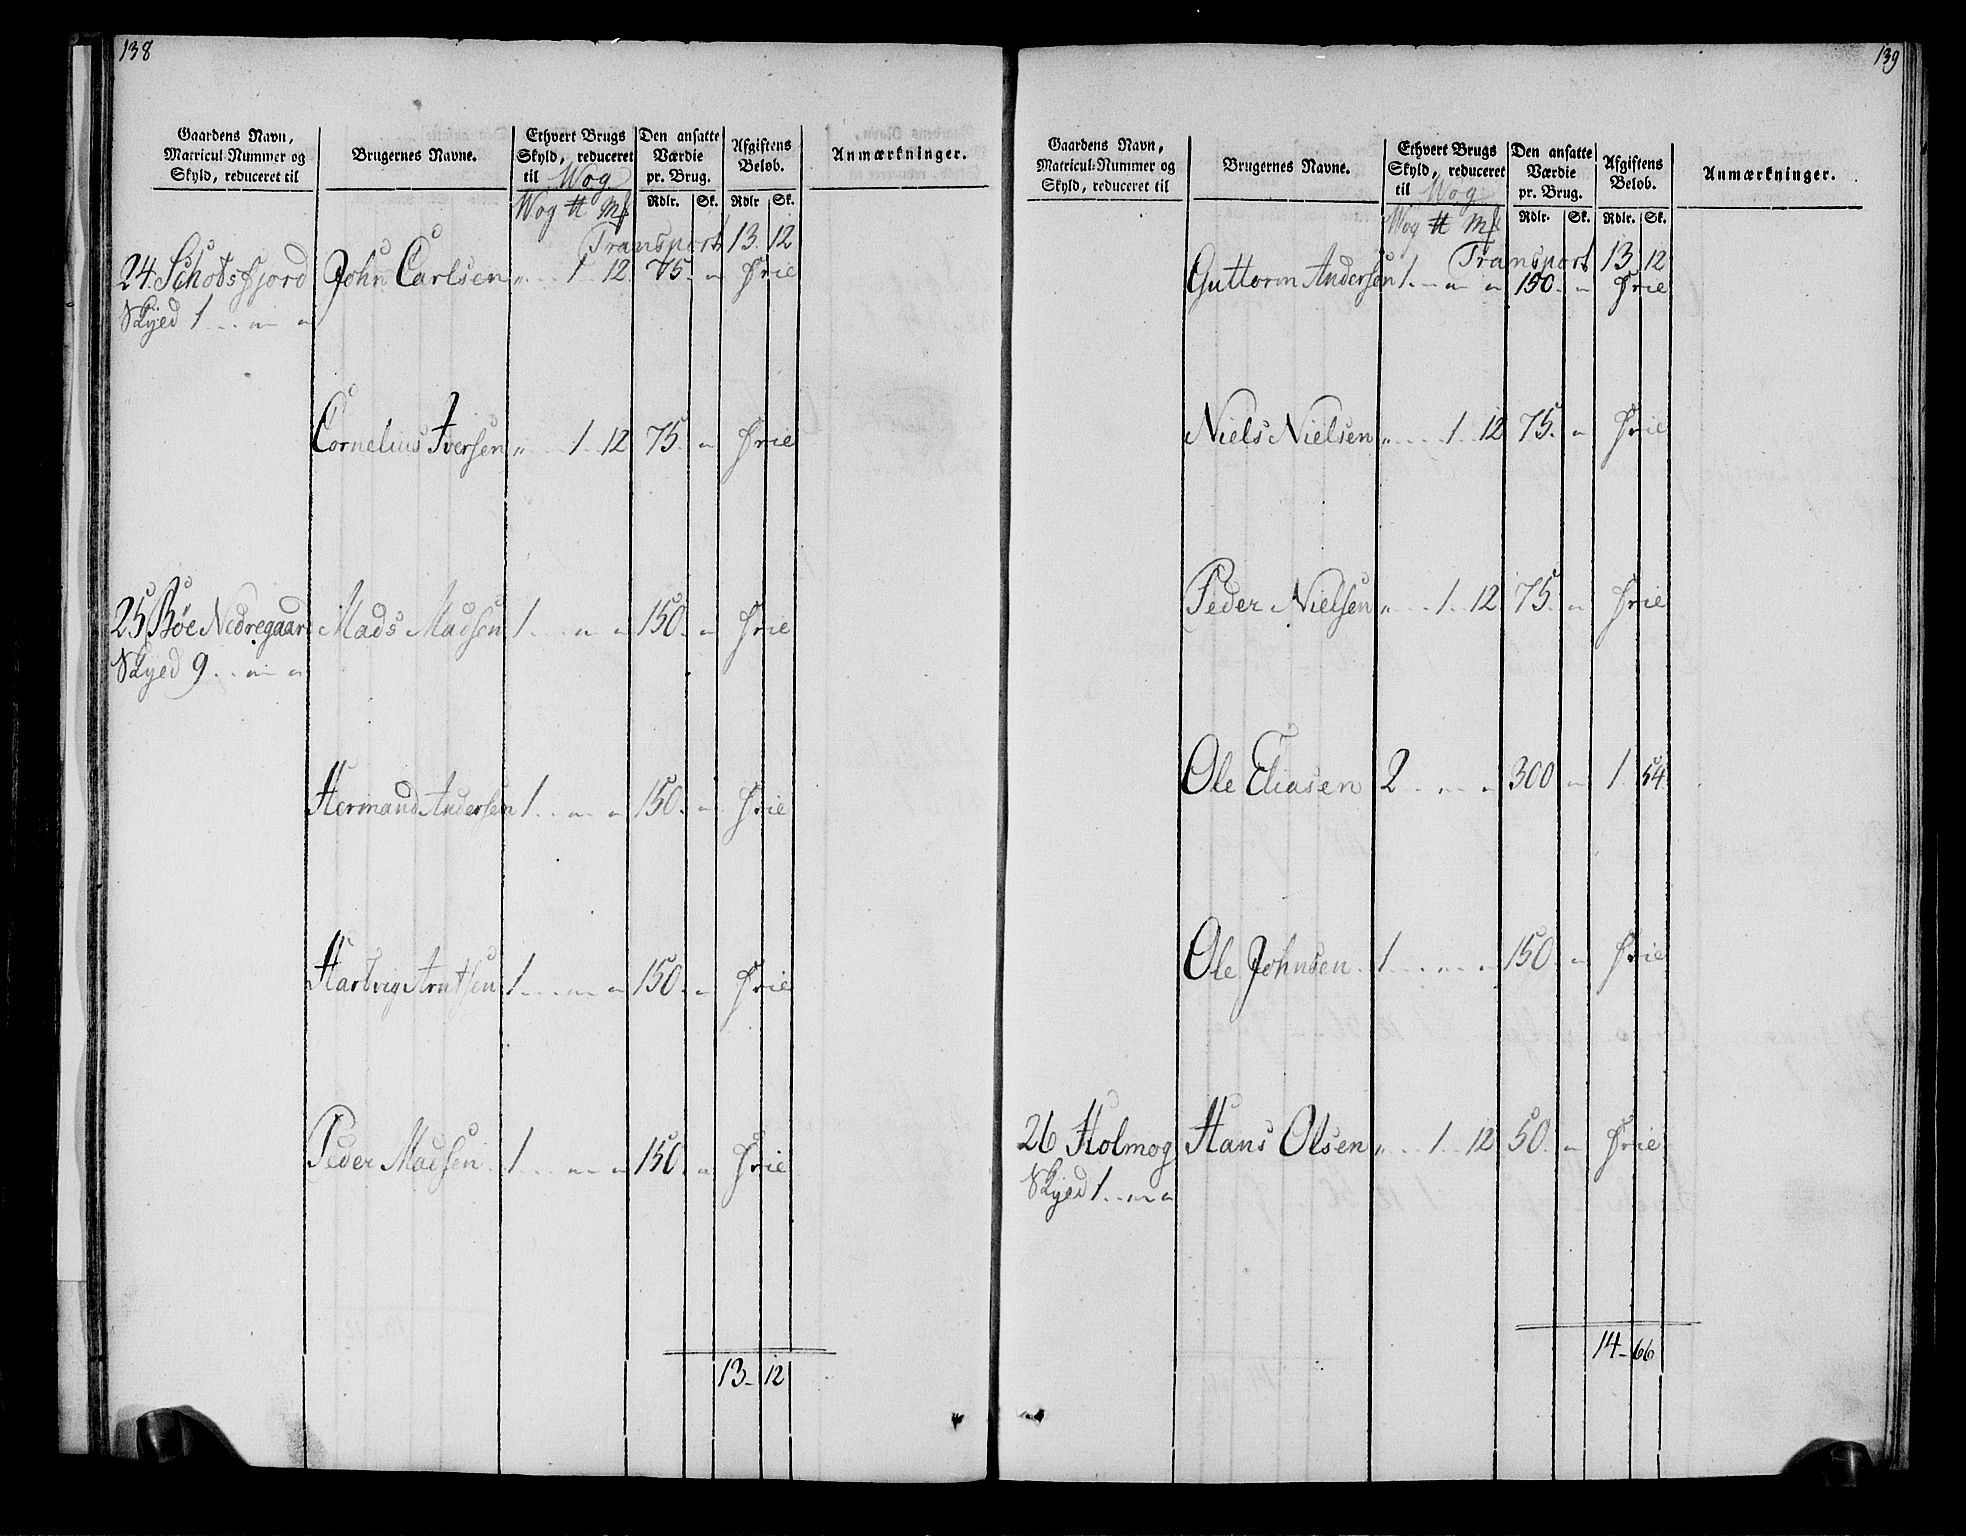 138
Gaardens Navn, Matricul-Nummer og Skyld, reduceret til | Brugernes Navne. | Ethvert Brugs Skyld, reduceret til Wog | Den ansatte Værdie pr. Brug. | Afgiftens Belob. | Anmærkninger.
Wog ℔ Mk | Rdlr. Sk. | Rdlr Sk.
Transport 13. 12
24. Schotsfjord John Carlsen „ 1 12 75 „ Frie
Skyed 1 „ „
Cornelius Iversen „ 1 12 75 „ Frie
25 Bøe Nedregaar Mads Madsen 1 „ „ 150 „ Frie
Skyed 9 „ „
Hermand Andersen 1 „ „ 150 „ Frie
Hartvig Arntsen 1 „ „ 150 „ Frie
Peder Madsen 1 „ „ 150 „ Frie
13 12
139
Gaardens Navn, Matricul-Nummer og Skyld, reduceret til | Brugernes Navne. | Ethvert Brugs Skyld, reduceret til Wog | Den ansatte Værdie pr. Brug. | Afgiftens Belob. | Anmærkninger.
Wog ℔ Mk | Rdlr. Sk. | Rdlr. Sk.
Transport 13 12
Guttorm Andersen 1 „ „ 150 „ Frie
Niels Nielsen „ 1 12 75 „ Frie
Peder Nielsen „ 1 12 75 „ Frie
Ole Eliasen 2 „ „ 300 „ 1 54
Ole Johnsen 1 „ „ 150 „ Frie
26 Holmog Hans Olsen „ 1 12 50 „ Frie
Skyed 1 „ „
14 66